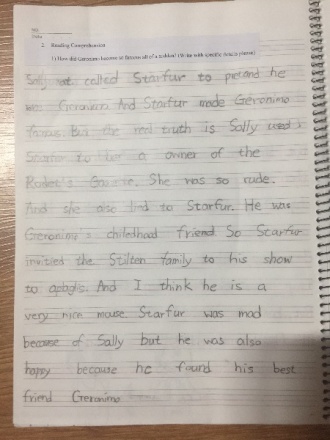 2. Reading Comprehension
1) How did Geronimo become so famous all of a sudden? (Write with specific details please)
Sally called Starfur to pretend he
was Geronimo. And Starfur made Geronimo
famous. But the real truth is Sally used
Starfur to be a owner of the
Rodent's Gazette. She was so rude.
And she also lied to Starfur. He was
Geronimo's childhood friend So Starfur
invitied the Stilton family to his show
to apologis. And I think he is a
very nice mouse. Starfur was mad
because of Sally but he was also
happy because he found his best
friend Geronimo